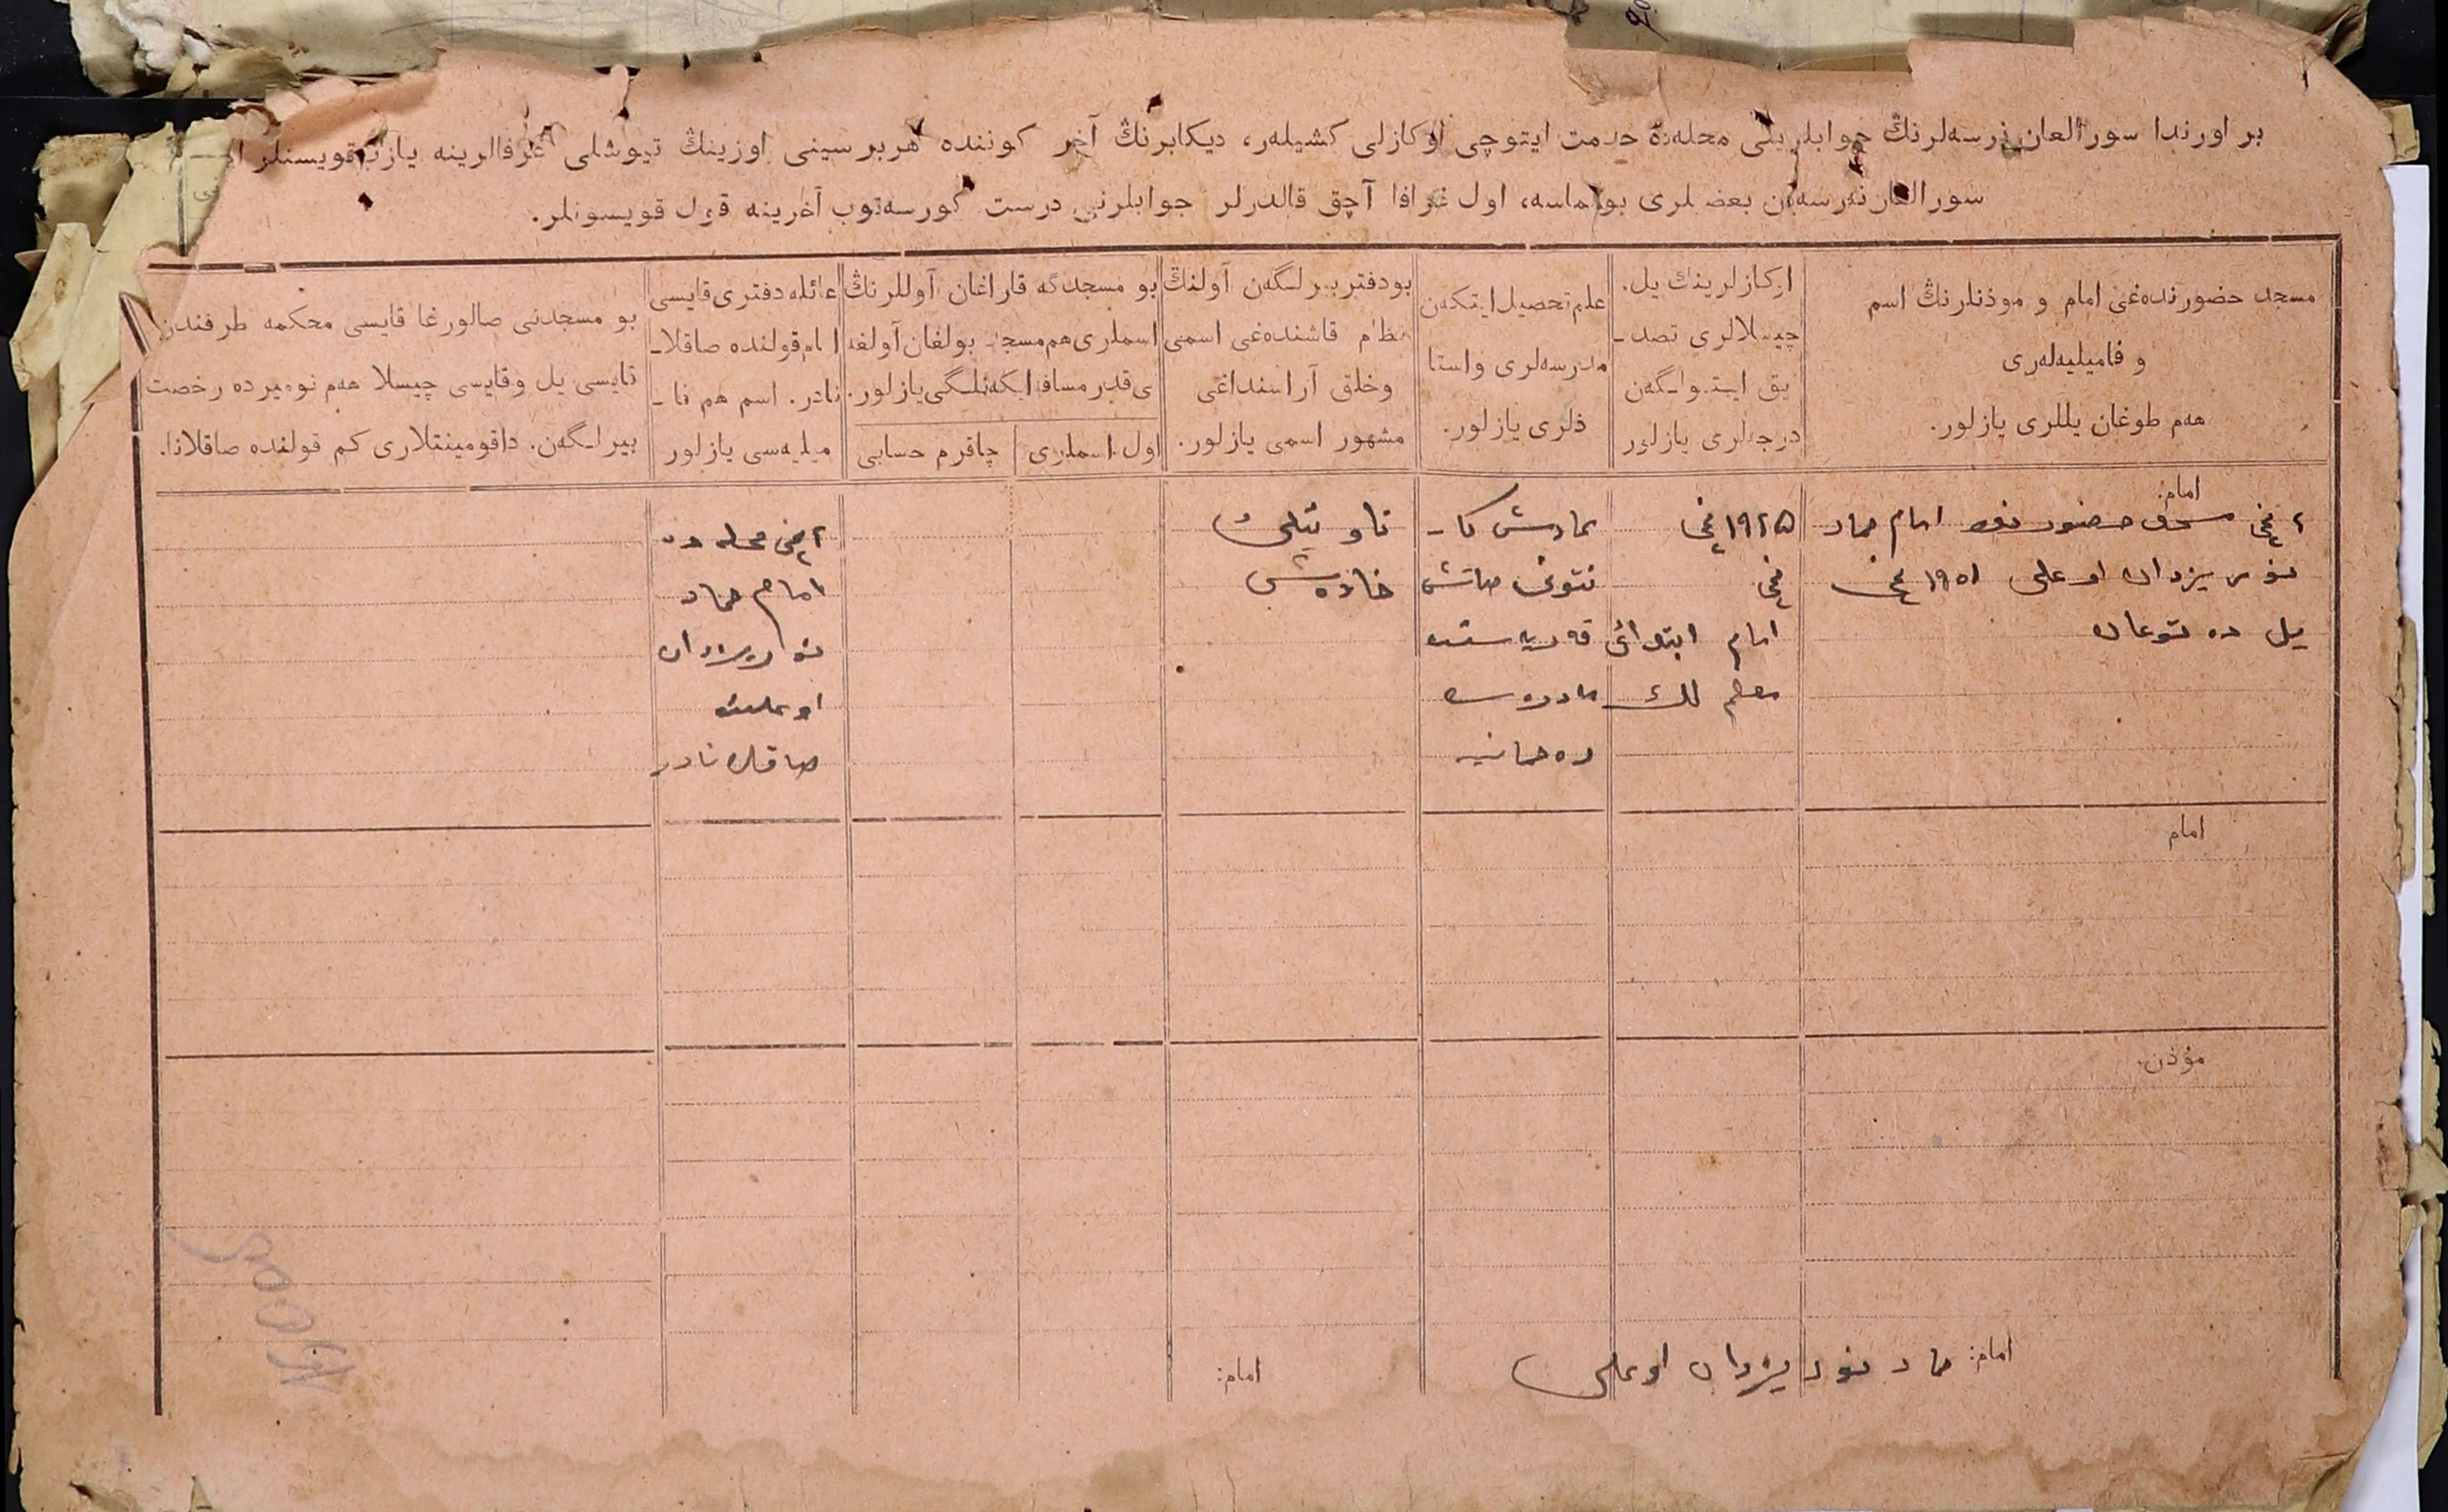 بر اورندا سورالغان نرسه‌لرنڭ جوابلر بلی محله‌ده خدمت ایتوچی اوکازلی کشیله‌ر، دیکابرنڭ آخر کوننده هربر سینی اوزینڭ تیوشلی غرفالرینه یازب قویسنلر
سورالغان نه‌رسه‌دن بعضلری بولماسه، اول غرافا آچق قالدرلر جوابلرنی درست کورسه‌توب آخرینه قول قویسونلر.
مسجد حضورنده‌غی امام و موذنلرنڭ اسم
و فامیلیه‌له‌ری
هه‌م طوغان یللری یازلور.
اوکازلرینڭ یل.
چیسلالری تصد‍-
یق ایتولگه‌ن
درجه‌لری یازلور
علم تحصیل ایتکه‌ن
مدرسه‌لری واستا
ذلری یازلور.
بودفتر بیرلگه‌ن آولنڭ
نظام قاشنده‌غی اسمی
وخلق آراسنداغی
مشهور اسمی یازلور.
بو مسجدگه قاراغان آوللرنڭ
اسملری هم مسجد بولغان آولغه
ی قدر مسافه‌ایکه‌نلگی یازلور.
اول اسملری
چاقرم حسابی
عائله دفتری قایسی
امام قولنده صاقلا-
نادر. اسم هم فا-
میلیه‌سی یازلور
بو مسجدنی صالورغا قایسی محکمه طرفندن
قایسی یل وقایسی چیسلا هه‌م نومیرده رخصت
بیرلگه‌ن. داقومینتلاری کم قولنده صاقلانا.
امام.
٢ نچی مسجد حضورنده امام حماد
نور یزدان اوعلی ١٩٠١ نچی
یل ده توعان
١٩٢٥ نچی
نچی
امام ابتدائی
معلم لك
نتونی
قه‌ریه‌سنده
مادره‌سه
ره‌حمانیه
تاو
٢ نچی محله‌ده
امام حماد
نور یزدان
اوعلنده
صاقلانادر
امام
مؤذن.
امام: حماد نور یزدان اوعلی
امام: